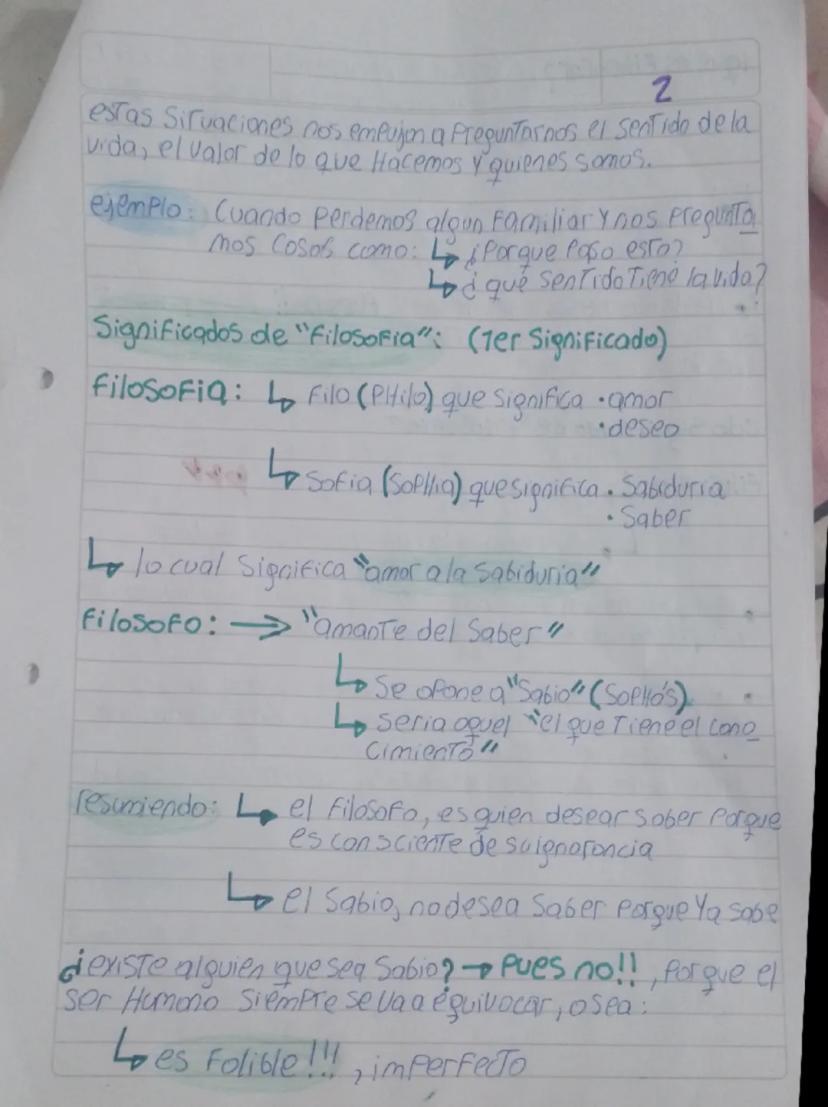 2
estas situaciones nos empujan a preguntarnos el sentido de la
vida, el valor de lo que Hacemos y quienes somos.
ejemplo: Cuando perdemos algun familiar y nos pregunta
mos cosas como: ↳ ¿Porque paso esto?
↳ ¿qué sentido tiene la vida?
Significados de "filosofia": (1er Significado)
filosofia: ↳ Filo (PHilo) que significa • amor
• deseo
↳ Sofia (SopHia) que significa • Sabiduria
• Saber
↳ lo cual significa "amor a la Sabiduria"
filosofo: → "amante del Saber"
↳ Se opone a "Sabio" (SopHós)
↳ seria aquel "el que tiene el cono
cimiento"
resumiendo: ↳ el filosofo, es quien desear saber porque
es consciente de su ignorancia
↳ el Sabio, no desea Saber porque Ya sabe
¿existe alguien que sea Sabio? → Pues no!!, Porque el
ser Humano siempre se va a équivocar, osea:
↳ es Folible!!!, imperfecto